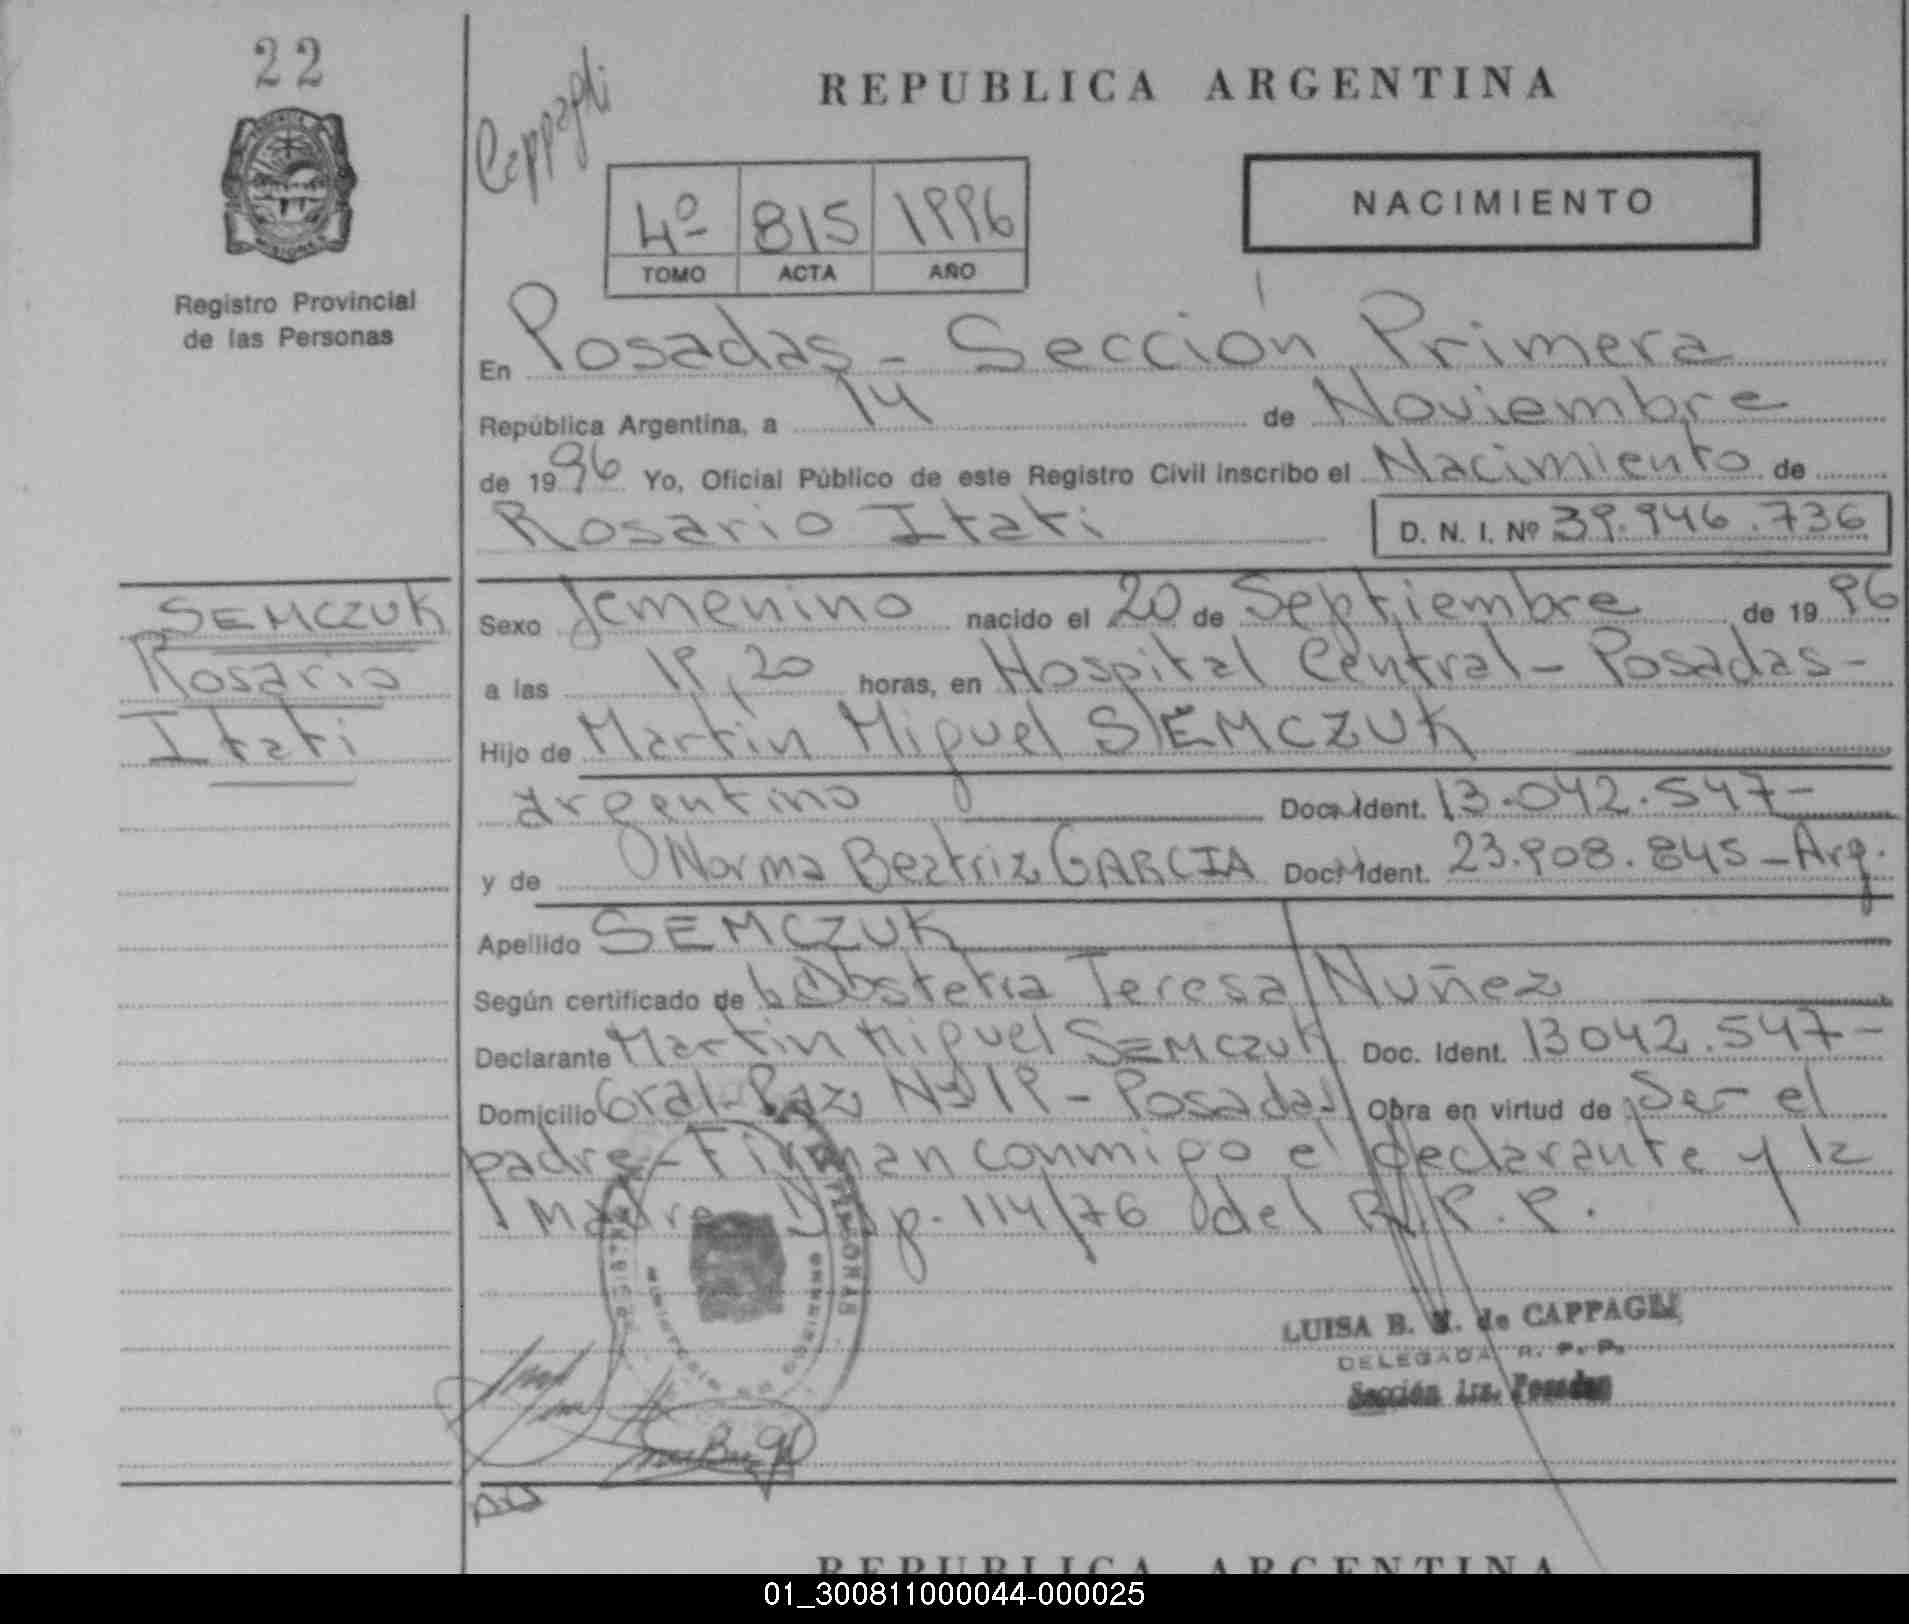 22
Cappagli
REPUBLICA ARGENTINA
4º 815 1996
TOMO ACTA AÑO
NACIMIENTO
Registro Provincial
de las Personas
En Posadas - Sección Primera
República Argentina, a 14 de Noviembre
de 1996 Yo, Oficial Público de este Registro Civil inscribo el Nacimiento de
Rosario Itati D. N. I. Nº 39.946.736
SEMCZUK
Rosario
Itati
Sexo femenino nacido el 20 de Septiembre de 1996
a las 19,20 horas, en Hospital Central - Posadas -
Hijo de Martin Miguel SEMCZUK
argentino Doc. Ident. 13.042.547-
y de Norma Beatriz GARCIA Doc. Ident. 23.908.845 - Arg.
Apellido SEMCZUK
Según certificado de Obstetra Teresa Nuñez
Declarante Martin Miguel SEMCZUK Doc. Ident. 13042.547-
Domicilio Gral. Paz Nº 19 - Posadas Obra en virtud de Ser el
padre - Firman conmigo el declarante y la
madre Disp. 114/76 del R.P.P.
LUISA B. de CAPPAGLI
DELEGADA R. P. P.
Sección 1ra. Posadas
REPUBLICA ARGENTINA
01_300811000044-000025